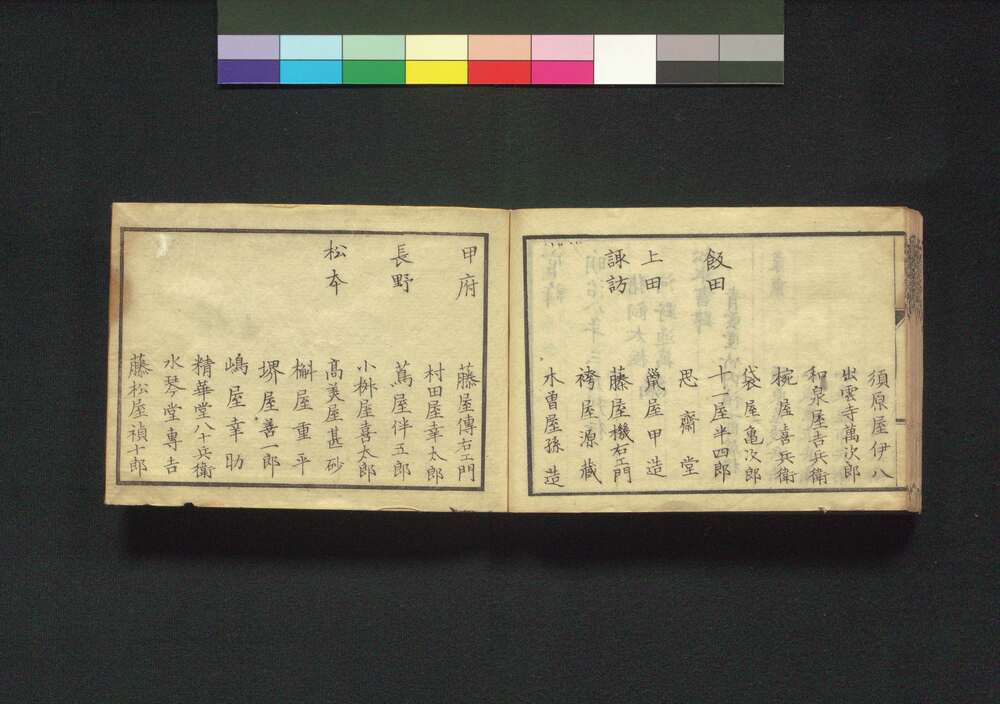 須原屋伊八
出雲寺萬次郎
和泉屋吉兵衛
椀屋喜兵衛
袋屋亀次郎
飯田 十一屋半四郎
思齋堂
上田 蠟屋甲造
諏訪 藤屋機右エ門
袴屋源藏
木曽屋孫造
甲府 藤屋傳右エ門
村田屋幸太郎
長野 蔦屋伴五郎
小桝屋喜太郎
松本 髙美屋甚砂
槲屋重平
堺屋善一郎
嶋屋幸助
精華堂八十兵衛
水琴堂專吉
藤松屋禎十郎